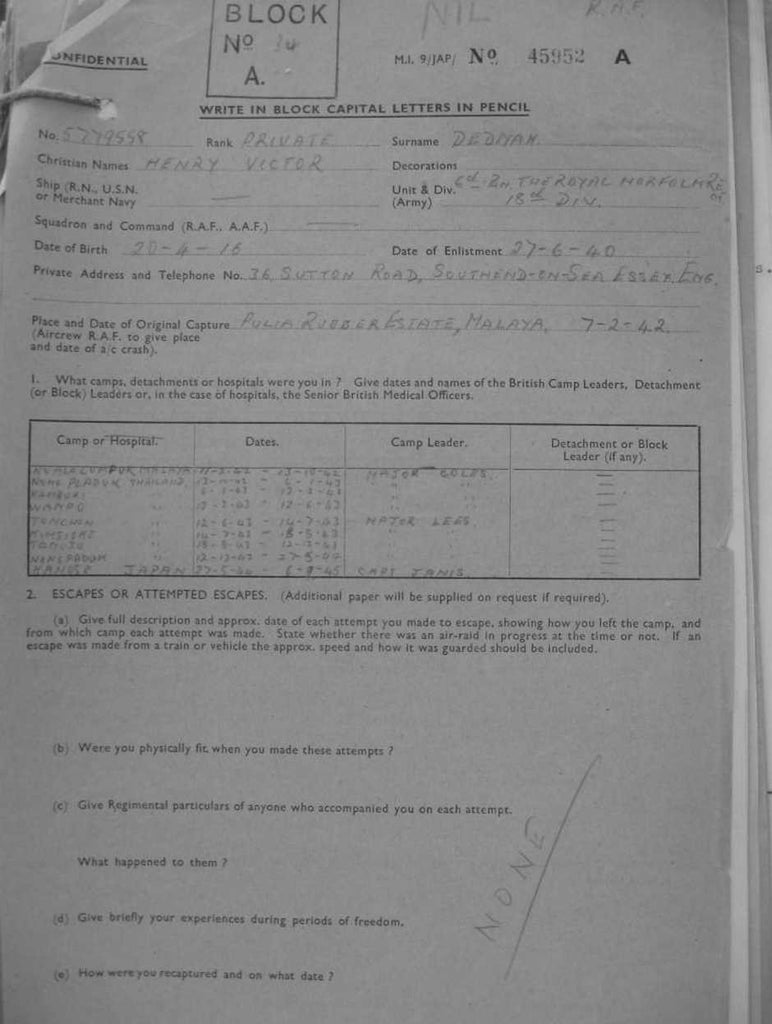 BLOCK
Nº
A.
NIL
R.A.F.
ONFIDENTIAL
M.I. 9/JAP/ Nº 45952 A
WRITE IN BLOCK CAPITAL LETTERS IN PENCIL
No. 5779558 Rank PRIVATE Surname DEDMAN.
Christian Names HENRY VICTOR Decorations
Ship (R.N., U.S.N. or Merchant Navy — Unit & Div. (Army) 6th Bn. THE ROYAL NORFOLK
18th DIV.
Squadron and Command (R.A.F., A.A.F.) —
Date of Birth 20-4-16 Date of Enlistment 27-6-40
Private Address and Telephone No. 36, SUTTON ROAD, SOUTHEND-ON-SEA ESSEX, ENG.
Place and Date of Original Capture RUBBER ESTATE, MALAYA. 7-2-42.
(Aircrew R.A.F. to give place
and date of a/c crash).
1. What camps, detachments or hospitals were you in ? Give dates and names of the British Camp Leaders, Detachment
(or Block) Leaders or, in the case of hospitals, the Senior British Medical Officers.
Camp or Hospital. Dates. Camp Leader. Detachment or Block
Leader (if any).
MALAYA - 13-10-42 MAJOR COLES. —
PLADUK THAILAND. 13-10-42 - 6-1-43 " " —
" " " —
" - 12-6-43 " " —
TONCHON " 12-6-43 - 14-7-43 MAJOR LEES. —
" 14-7-43 - 18-8-43 " " —
" " " —
" 12-12-43 - 27-5-44 " " —
JAPAN 27-5-44 - 6-9-45 CAPT JANIS. —
2. ESCAPES OR ATTEMPTED ESCAPES. (Additional paper will be supplied on request if required).
(a) Give full description and approx. date of each attempt you made to escape, showing how you left the camp, and
from which camp each attempt was made. State whether there was an air-raid in progress at the time or not. If an
escape was made from a train or vehicle the approx. speed and how it was guarded should be included.
(b) Were you physically fit when you made these attempts ?
(c) Give Regimental particulars of anyone who accompanied you on each attempt.
NONE
What happened to them ?
(d) Give briefly your experiences during periods of freedom.
(e) How were you recaptured and on what date ?